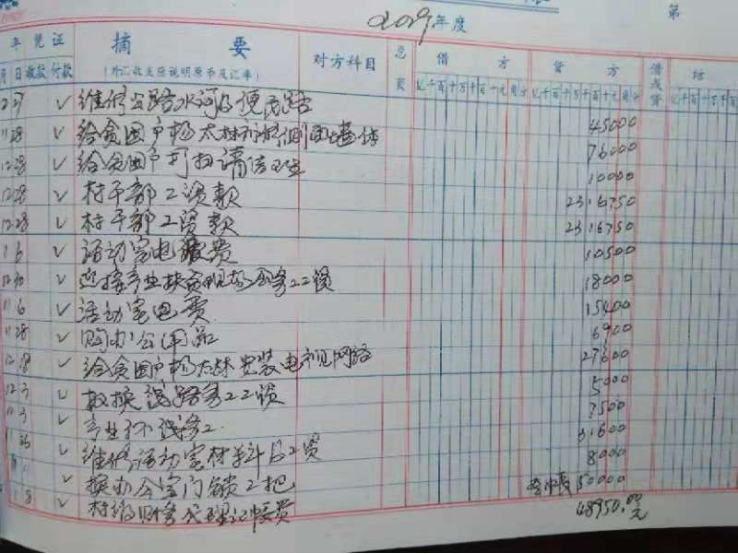 2019年度 第
年 凭证 摘 要 对方科目 总页 借 方 贷 方 借或贷 结
月 日 收款 付款 (外汇收支应说明原币及汇率) 亿千百十万千百十元角分 亿千百十万千百十元角分 亿千百十万千百
✓ 维修公路水沟及便民路 45000
11 28 ✓ 给贫困户杨太林 墙体 76000
12 28 ✓ 给贫困户打扫清洁卫生 10000
12 28 ✓ 村干部工资款 2316750
12 28 ✓ 村干部工资款 2316750
1 6 ✓ 活动室电费 10500
12 30 ✓ 迎接产业扶贫现场会务工工资 18000
11 6 ✓ 活动室电费 15400
11 28 ✓ 购办公用品 6900
12 18 ✓ 给贫困户杨太林安装电视网络 27600
12 3 ✓ 线路务工工资 5000
11 3 ✓ 产业 务工 7500
✓ 维修活动室材料及工资 31600
✓ 换办公室门锁工 8000
8 ✓ 村级财务代理记账费 50000
48950.00元